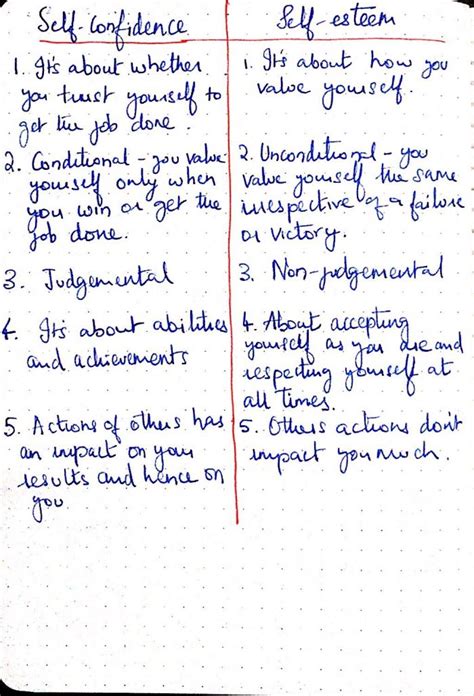 Self-Confidence
1. It's about whether
you trust yourself to
get the job done.
2. Conditional - you value
yourself only when
you win or get the
job done.
3. Judgemental
4. It's about abilities
and achievements
5. Actions of others has
an impact on your
results and hence on
you
Self-esteem
1. It's about how you
value yourself.
2. Unconditional - you
value yourself the same
irrespective of a failure
or victory.
3. Non-judgemental
4. About accepting
yourself as you are and
respecting yourself at
all times.
5. Others actions don't
impact you much.